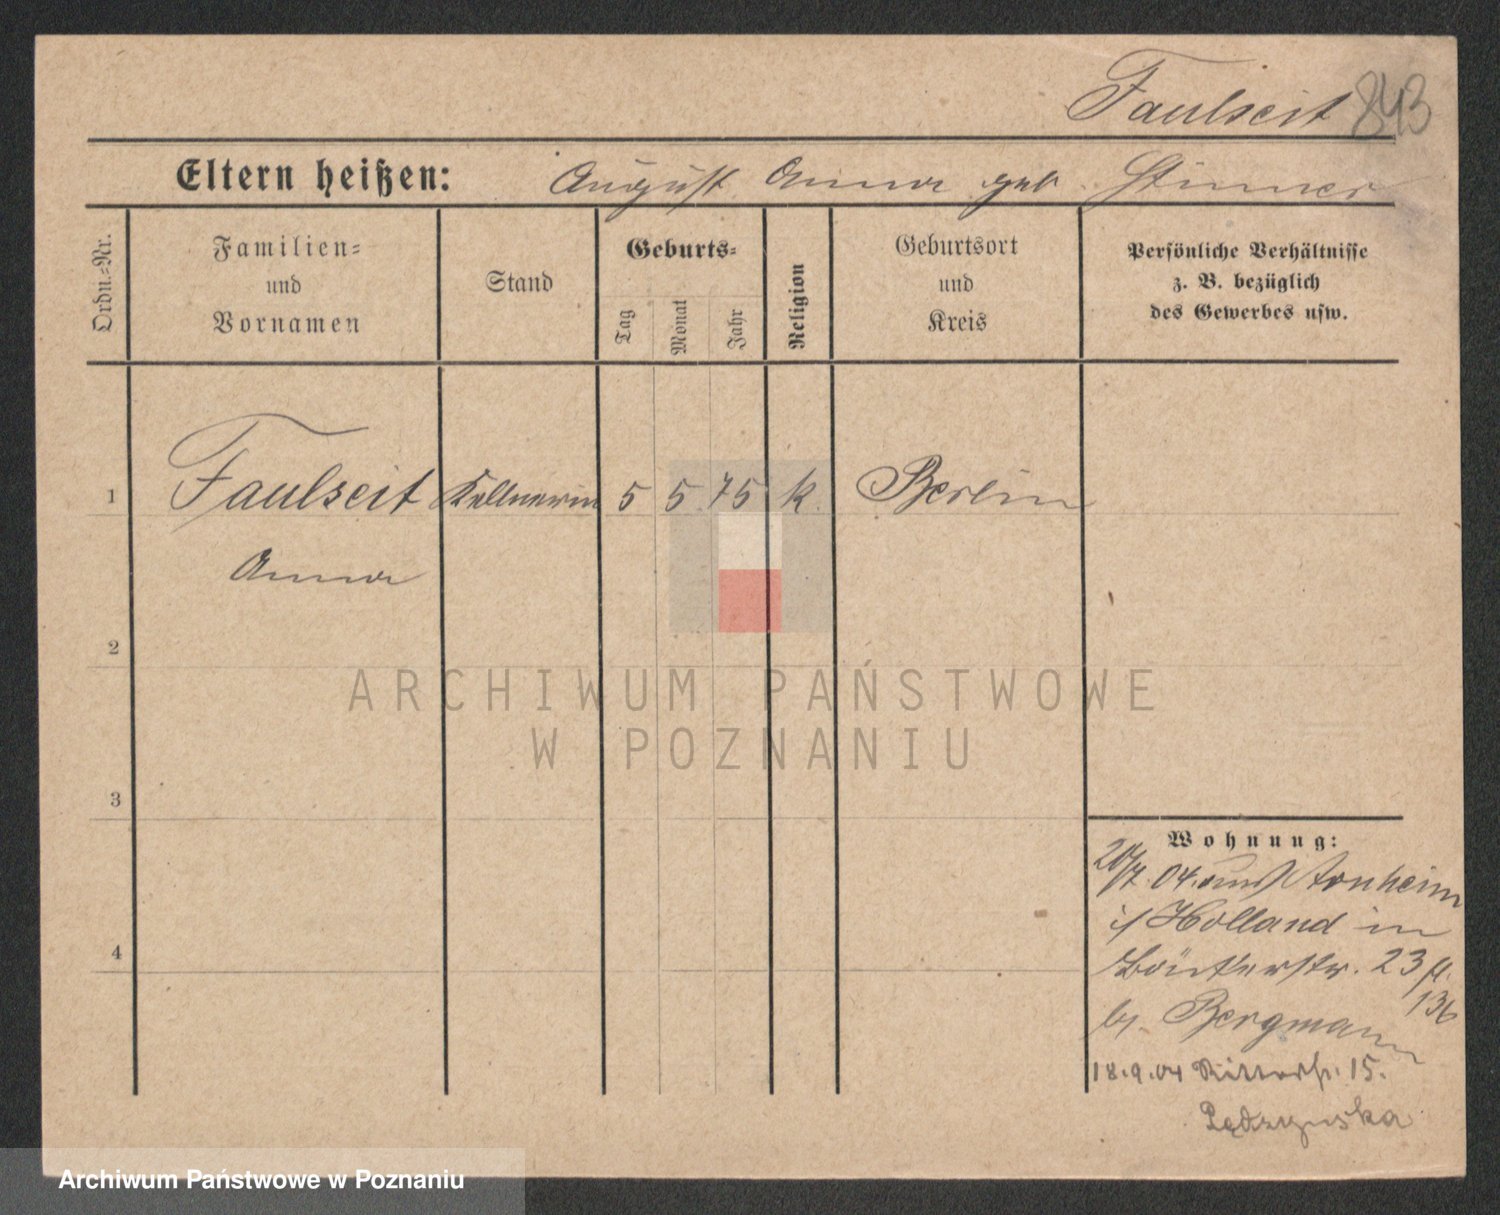 Faulseit 843
Eltern heißen: August Anna geb. Stinner
Ordn.-Nr.
Familien-
und
Vornamen
Stand
Geburts-
Tag
Monat
Jahr
Religion
Geburtsort
und
Kreis
Persönliche Verhältnisse
z. B. bezüglich
des Gewerbes usw.
1 Faulseit Kellnerin 5 5 75 k. Berlin
Anna
2
ARCHIWUM PAŃSTWOWE
W POZNANIU
3
Wohnung:
20/7. 04. aus Arnheim
i/ Holland in
23
136
b. Bergmann
4
18.9.04 Ritterstr. 15.
Pędzynska
Archiwum Państwowe w Poznaniu